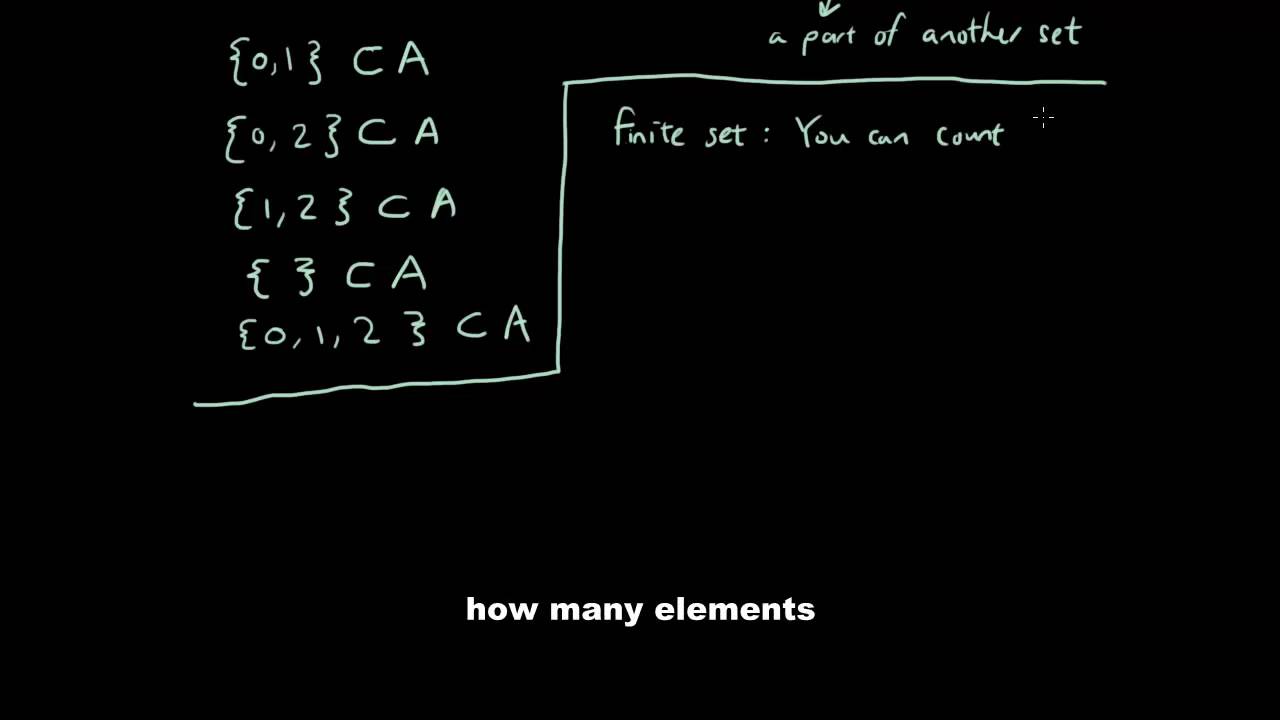 a part of another set
{0,1} ⊂ A
{0,2} ⊂ A
{1,2} ⊂ A
{ } ⊂ A
{0,1,2} ⊂ A
finite set: You can count
how many elements